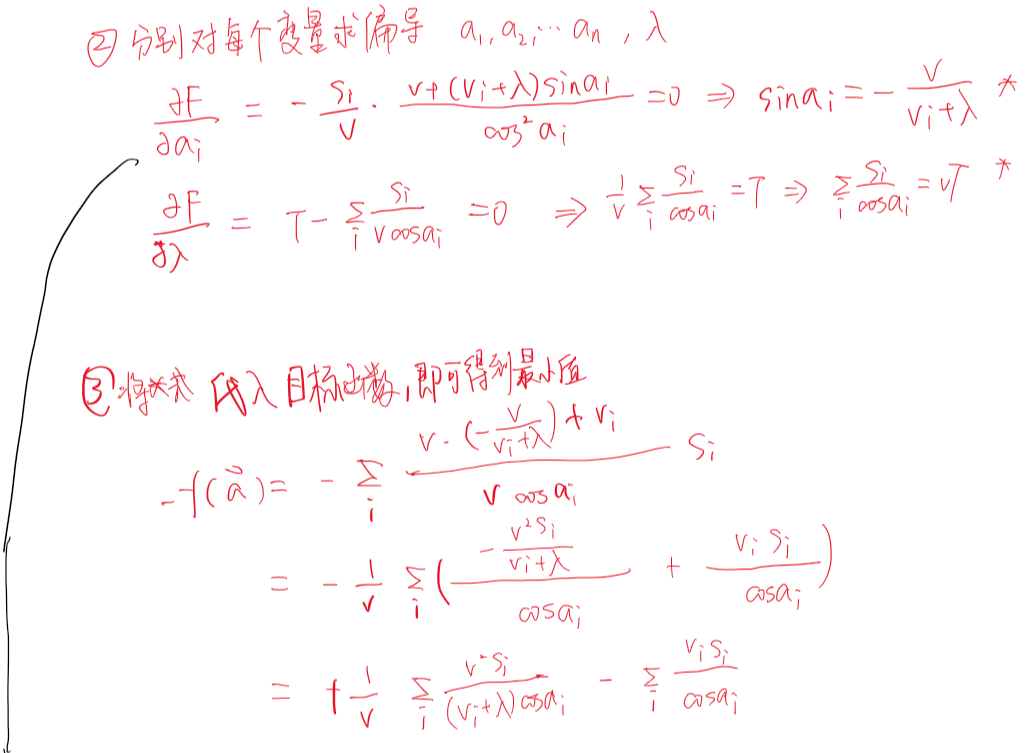 ② 分别对每个变量求偏导 a₁,a₂,… aₙ , λ
∂F/∂aᵢ = - Sᵢ/V · (V+(Vᵢ+λ)sinaᵢ)/(cos²aᵢ) =0 ⇒ sinaᵢ = - V/(Vᵢ+λ) *
∂F/∂λ = T - ∑ᵢ Sᵢ/(V cosaᵢ) =0 ⇒ 1/V ∑ᵢ Sᵢ/cosaᵢ = T ⇒ ∑ᵢ Sᵢ/cosaᵢ = VT *
③ 将*式 代入目标函数,即可得到最小值
-f(a⃗) = - ∑ᵢ (V·(-V/(Vᵢ+λ)) + Vᵢ)/(V cosaᵢ) Sᵢ
= - 1/V ∑ᵢ ((-V²Sᵢ/(Vᵢ+λ))/cosaᵢ + VᵢSᵢ/cosaᵢ)
= + 1/V ∑ᵢ V²Sᵢ/((Vᵢ+λ)cosaᵢ) - ∑ᵢ VᵢSᵢ/cosaᵢ